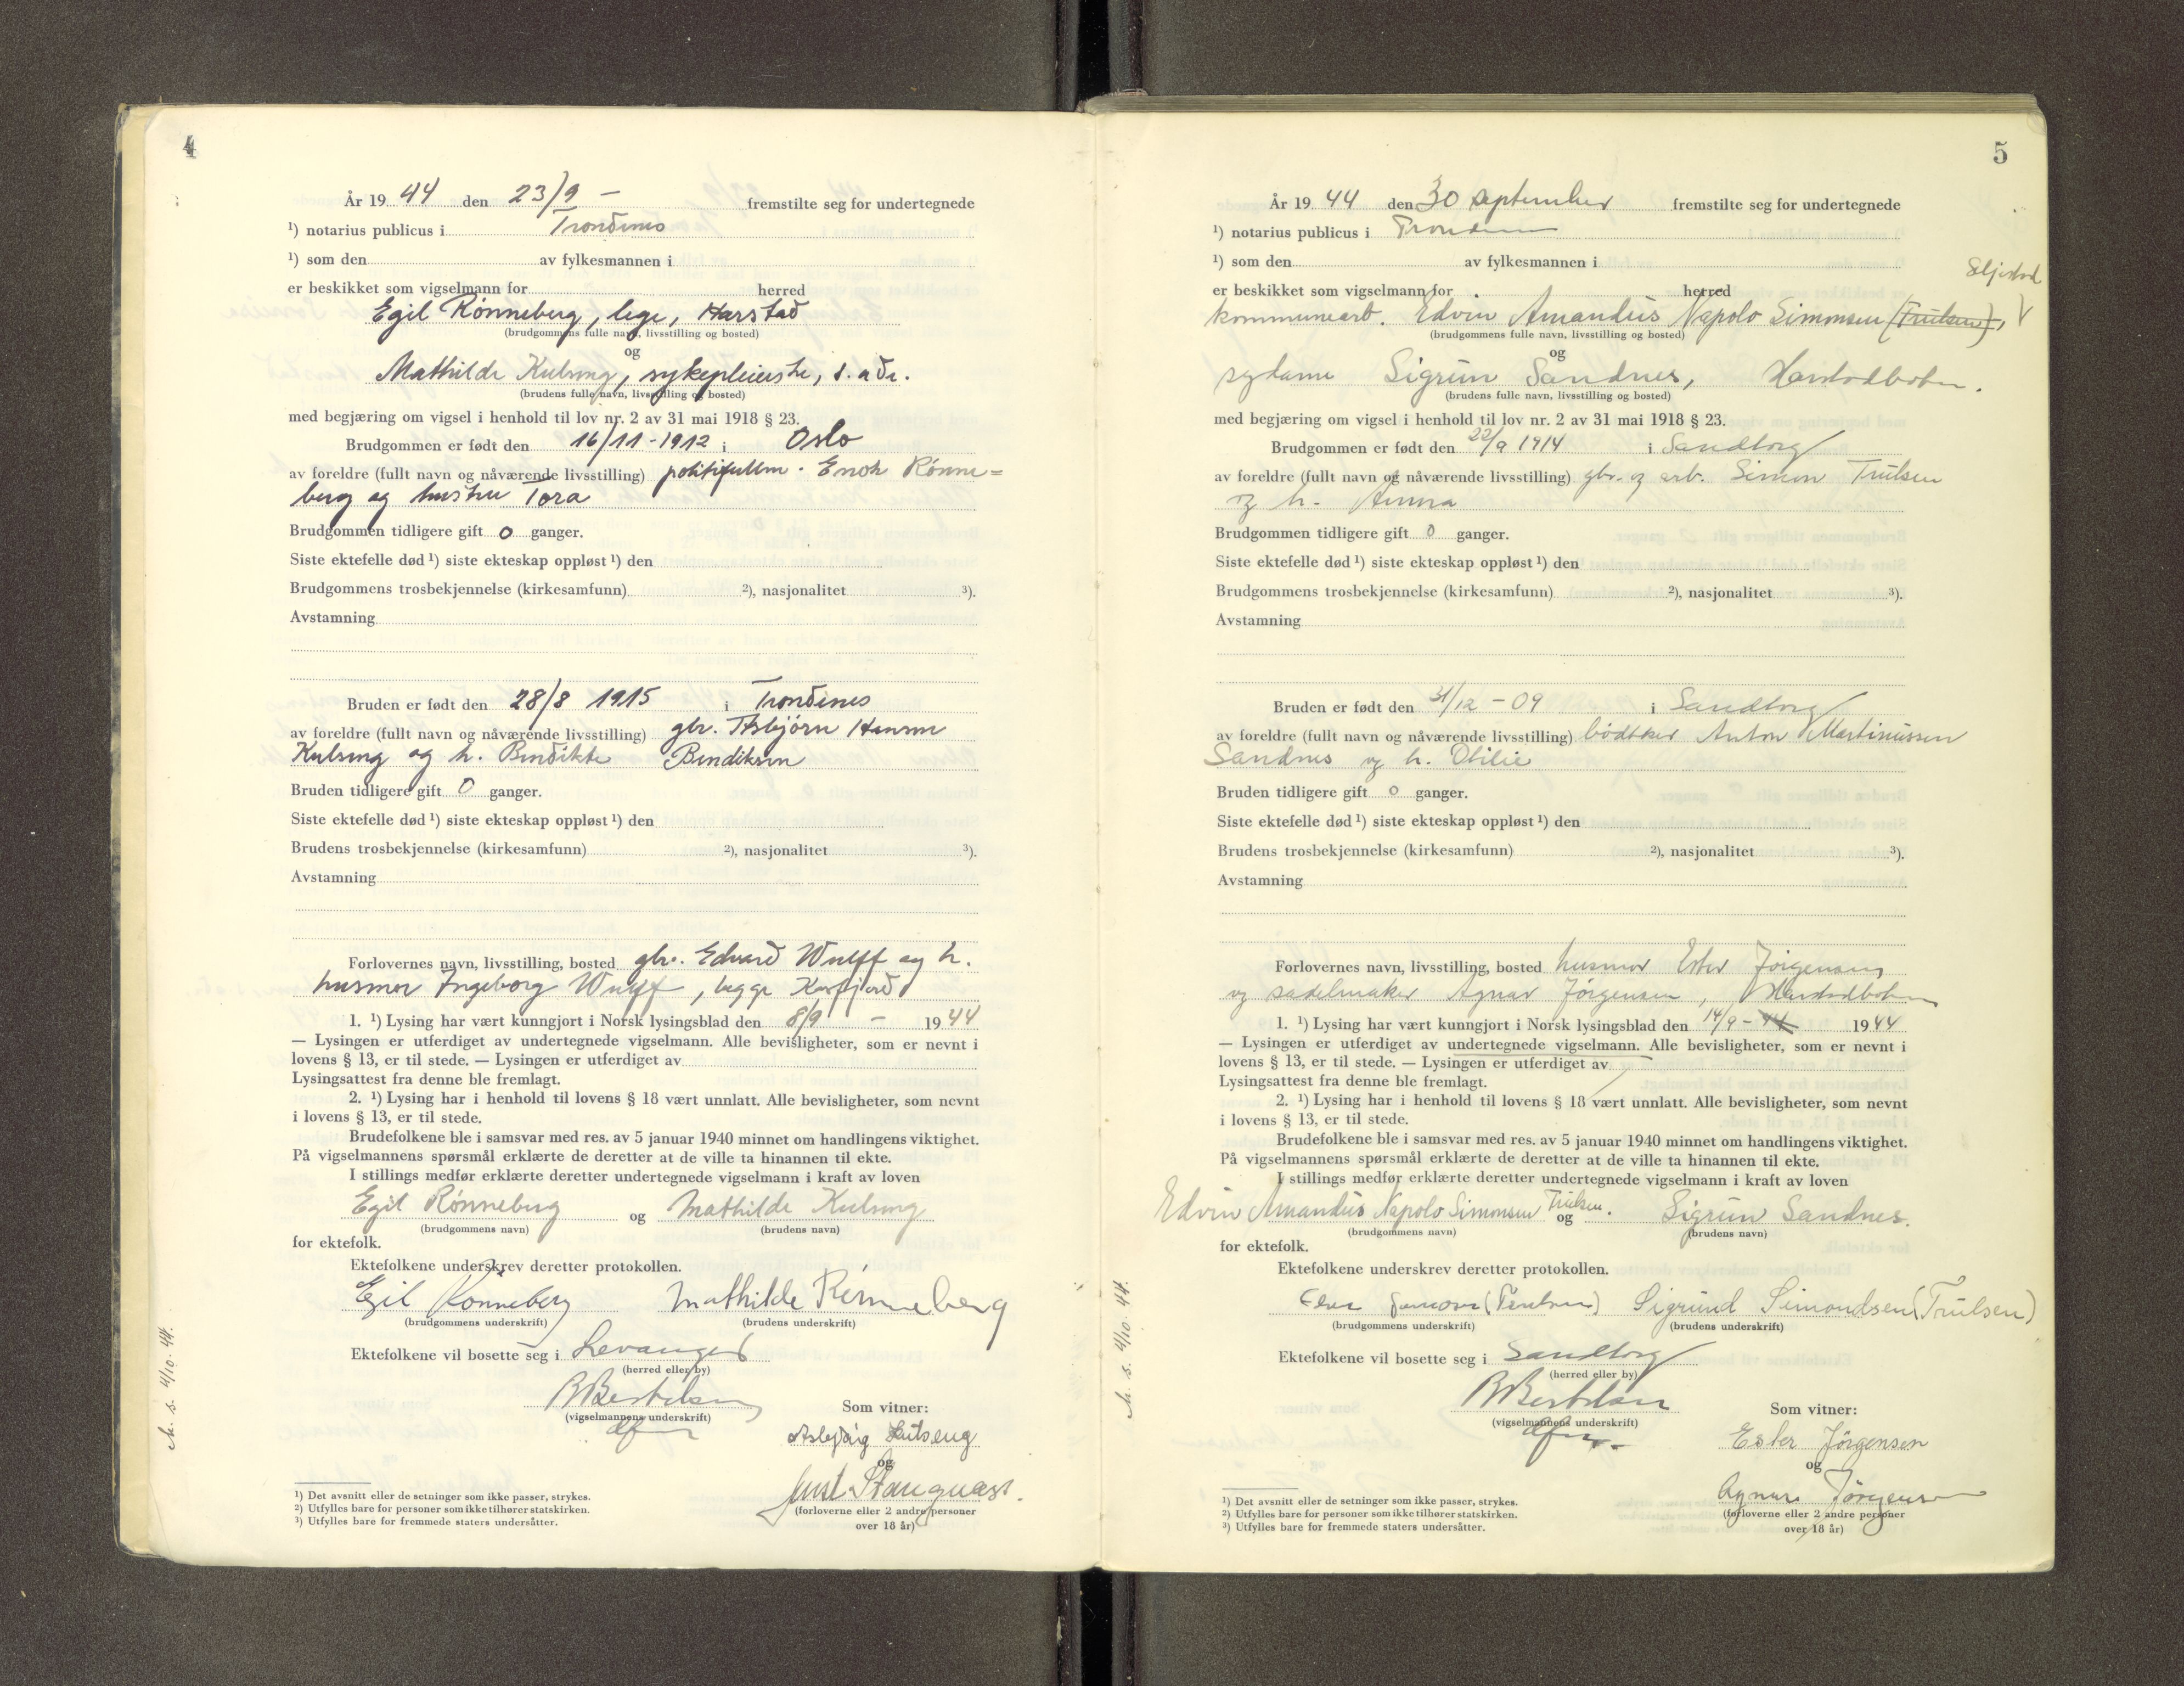 4
År 19 44 den 23/9 – fremstilte seg for undertegnede
¹) notarius publicus i Trondenes
¹) som den av fylkesmannen i
er beskikket som vigselmann for herred
Egil Rønneberg, lege, Harstad
(brudgommens fulle navn, livsstilling og bosted)
og
Mathilde Kulseng, sykepleierske, s. adr.
(brudens fulle navn, livsstilling og bosted)
med begjæring om vigsel i henhold til lov nr. 2 av 31 mai 1918 § 23.
Brudgommen er født den 16/11-1912 i Oslo
av foreldre (fullt navn og nåværende livsstilling) politifullm. Enok Rønne=
berg og hustru Tora
Brudgommen tidligere gift 0 ganger.
Siste ektefelle død ¹) siste ekteskap oppløst ¹) den
Brudgommens trosbekjennelse (kirkesamfunn) ²), nasjonalitet ³).
Avstamning
Bruden er født den 28/8 1915 i Trondenes
av foreldre (fullt navn og nåværende livsstilling) gbr. Asbjørn Hansen
Kulseng og h. Bendikte Bendiksen
Bruden tidligere gift 0 ganger.
Siste ektefelle død ¹) siste ekteskap oppløst ¹) den
Brudens trosbekjennelse (kirkesamfunn) ²), nasjonalitet ³).
Avstamning
Forlovernes navn, livsstilling, bosted gbr. Edvard Wulff og h.
husmor Ingeborg Wulff, begge Kasfjord
1. ¹) Lysing har vært kunngjort i Norsk lysingsblad den 8/9 – 19 44
— Lysingen er utferdiget av undertegnede vigselmann. Alle bevisligheter, som er nevnt i
lovens § 13, er til stede. — Lysingen er utferdiget av
Lysingsattest fra denne ble fremlagt.
2. ¹) Lysing har i henhold til lovens § 18 vært unnlatt. Alle bevisligheter, som nevnt
i lovens § 13, er til stede.
Brudefolkene ble i samsvar med res. av 5 januar 1940 minnet om handlingens viktighet.
På vigselmannens spørsmål erklærte de deretter at de ville ta hinannen til ekte.
I stillings medfør erklærte deretter undertegnede vigselmann i kraft av loven
Egil Rønneberg og Mathilde Kulseng
(brudgommens navn) (brudens navn)
for ektefolk.
Ektefolkene underskrev deretter protokollen.
Egil Rønneberg Mathilde Rønneberg
(brudgommens underskrift) (brudens underskrift)
Ektefolkene vil bosette seg i Levanger
(herred eller by)
B Bertelsen
(vigselmannens underskrift)
Som vitner:
Kulseng
og
Just Stangnæss.
(forloverne eller 2 andre personer
over 18 år)
M. s. 4/10. 44.
¹) Det avsnitt eller de setninger som ikke passer, strykes.
²) Utfylles bare for personer som ikke tilhører statskirken.
³) Utfylles bare for fremmede staters undersåtter.
5
År 19 44 den 30 september fremstilte seg for undertegnede
¹) notarius publicus i Trondenes
¹) som den av fylkesmannen i
er beskikket som vigselmann for herred
kommunearb. Edvin Amandus Napolo Simonsen (Trulsen),
(brudgommens fulle navn, livsstilling og bosted)
og
sydame Sigrun Sandnes, Harstadbotn.
(brudens fulle navn, livsstilling og bosted)
med begjæring om vigsel i henhold til lov nr. 2 av 31 mai 1918 § 23.
Brudgommen er født den 22/9 1914 i Sandtorg
av foreldre (fullt navn og nåværende livsstilling) gbr. og arb. Simon Trulsen
og h. Anna
Brudgommen tidligere gift 0 ganger.
Siste ektefelle død ¹) siste ekteskap oppløst ¹) den
Brudgommens trosbekjennelse (kirkesamfunn) ²), nasjonalitet ³).
Avstamning
Bruden er født den 31/12 – 09 i Sandtorg
av foreldre (fullt navn og nåværende livsstilling) bødtker Anton Martinussen
Sandnes og h. Otilie
Bruden tidligere gift 0 ganger.
Siste ektefelle død ¹) siste ekteskap oppløst ¹) den
Brudens trosbekjennelse (kirkesamfunn) ²), nasjonalitet ³).
Avstamning
Forlovernes navn, livsstilling, bosted husmor Ester Jørgensen
og sadelmaker Agnar Jørgensen, Harstadbotn
1. ¹) Lysing har vært kunngjort i Norsk lysingsblad den 14/9 – 44 19 44
— Lysingen er utferdiget av undertegnede vigselmann. Alle bevisligheter, som er nevnt i
lovens § 13, er til stede. — Lysingen er utferdiget av
Lysingsattest fra denne ble fremlagt.
2. ¹) Lysing har i henhold til lovens § 18 vært unnlatt. Alle bevisligheter, som nevnt
i lovens § 13, er til stede.
Brudefolkene ble i samsvar med res. av 5 januar 1940 minnet om handlingens viktighet.
På vigselmannens spørsmål erklærte de deretter at de ville ta hinannen til ekte.
I stillings medfør erklærte deretter undertegnede vigselmann i kraft av loven
Edvin Amandus Napolo Simonsen Trulsen. og Sigrun Sandnes.
(brudgommens navn) (brudens navn)
for ektefolk.
Ektefolkene underskrev deretter protokollen.
Sigrund Simondsen (Trulsen)
(brudgommens underskrift) (brudens underskrift)
Ektefolkene vil bosette seg i Sandtorg
(herred eller by)
B Bertelsen
(vigselmannens underskrift)
Som vitner:
Ester Jørgensen
og
Agnar Jørgensen
(forloverne eller 2 andre personer
over 18 år)
M. s. 4/10. 44.
¹) Det avsnitt eller de setninger som ikke passer, strykes.
²) Utfylles bare for personer som ikke tilhører statskirken.
³) Utfylles bare for fremmede staters undersåtter.